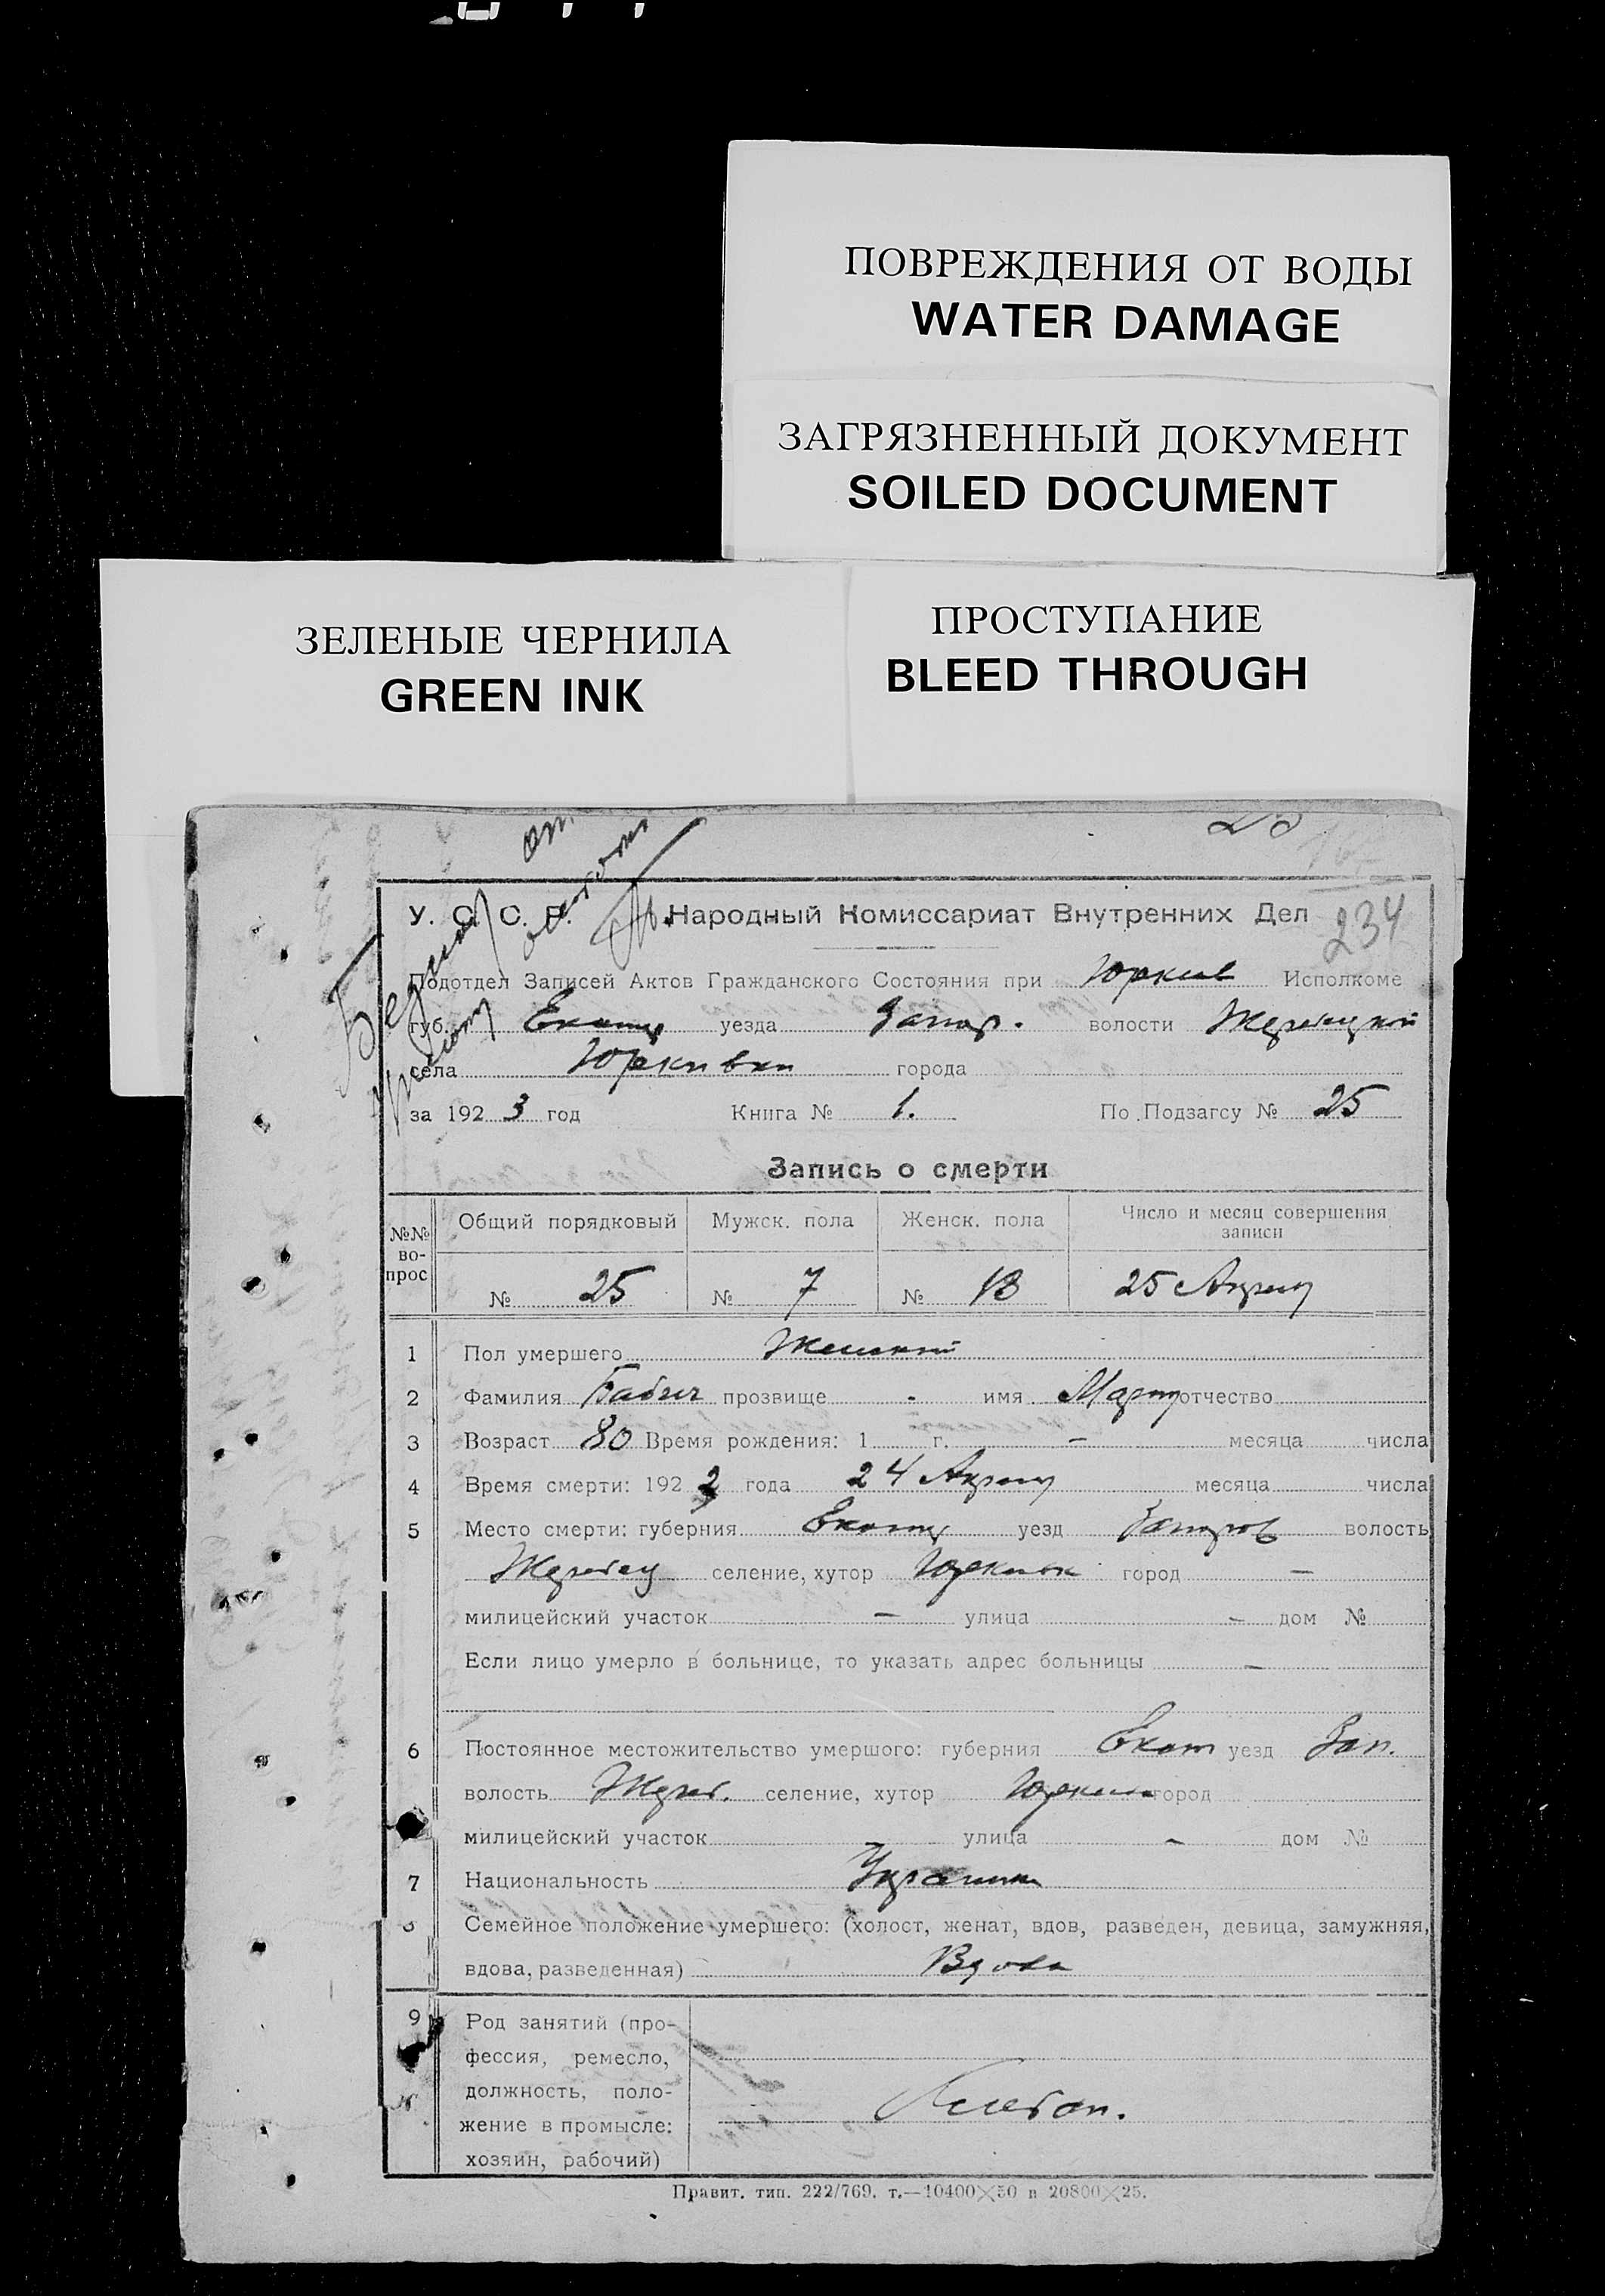 ПОВРЕЖДЕНИЯ ОТ ВОДЫ
WATER DAMAGE
ЗАГРЯЗНЕННЫЙ ДОКУМЕНТ
SOILED DOCUMENT
ЗЕЛЕНЫЕ ЧЕРНИЛА
GREEN INK
ПРОСТУПАНИЕ
BLEED THROUGH
234
У. С. С. Р. Народный Комиссариат Внутренних Дел
Подотдел Записей Актов Гражданского Состояния при Юркив Исполкоме
губ. Екатер уезда Запор. волости Жеребецкой
села Юркивки города
за 1923 год Книга № 1. По Подзагсу № 25
Запись о смерти
№№ во-прос
Общий порядковый Мужск. пола Женск. пола Число и месяц совершения записи
№ 25 № 7 № 18 25 Апреля
1 Пол умершего Женский
2 Фамилия Бабич прозвище - имя Марта отчество
3 Возраст 80 Время рождения: 1 г. – месяца числа
4 Время смерти: 192 года 24 Апреля месяца числа
5 Место смерти: губерния Екатер уезд Запоров волость
Жеребец селение, хутор Юркивк город –
милицейский участок – улица – дом №
Если лицо умерло в больнице, то указать адрес больницы –
6 Постоянное местожительство умершого: губерния Екат уезд Зап.
волость Жереб. селение, хутор Юркивк город
милицейский участок улица – дом №
7 Национальность Украинка
8 Семейное положение умершего: (холост, женат, вдов, разведен, девица, замужняя,
вдова, разведенная) Вдова
9 Род занятий (про-
фессия, ремесло,
должность, поло-
жение в промысле:
хозяин, рабочий)
Хлебоп.
Правит. тип. 222/769. т.—10400×50 и 20800×25.